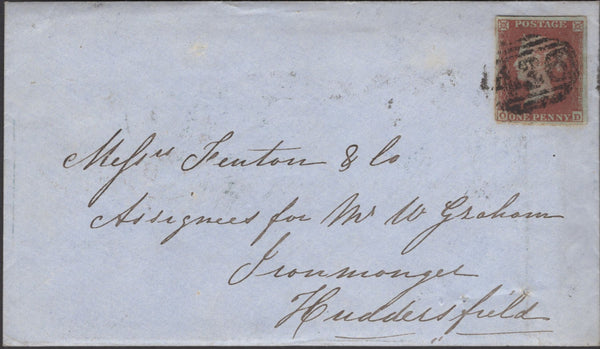 POSTAGE
ONE PENNY
D
Messrs Fenton & Co
Assignees for Mr W Graham
Ironmonger
Huddersfield